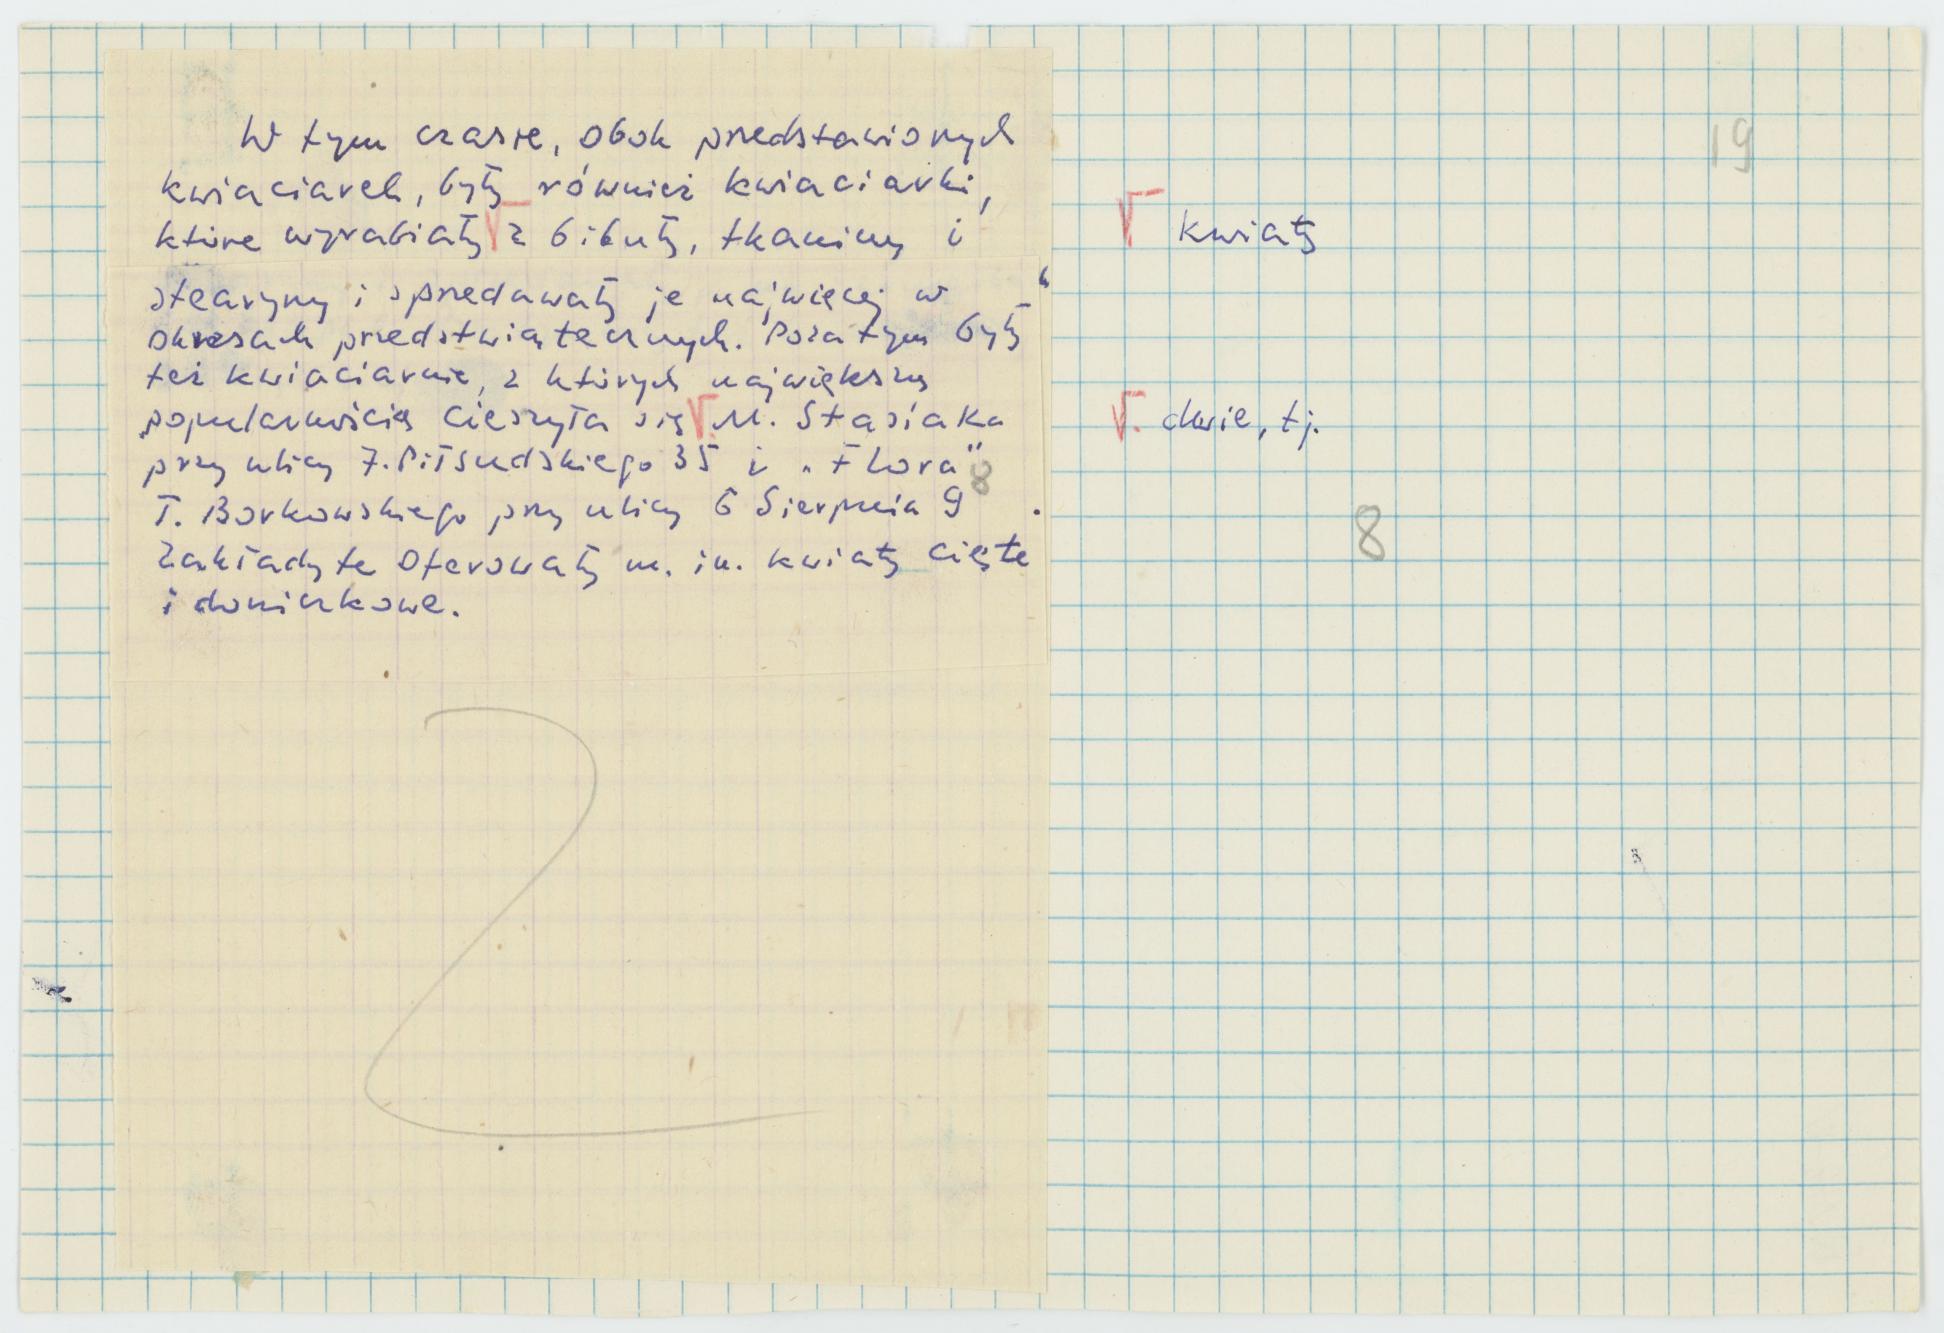 19
W tym czasie, obok przedstawionych
kwiaciarek, były również kwiaciarki,
które wyrabiały √ z bibuły, tkaniny i
stearyny i sprzedawały je najwięcej w
okresach przedświątecznych. Poza tym były
też kwiaciarnie, z których największą
popularnością cieszyła się √ M. Stasiaka
przy ulicy J. Piłsudskiego 35 i „Flora"
T. Borkowskiego przy ulicy 6 Sierpnia 9.
Zakłady te oferowały m. in. kwiaty cięte
i doniczkowe.
√ kwiaty
√ dwie, tj.
8
8